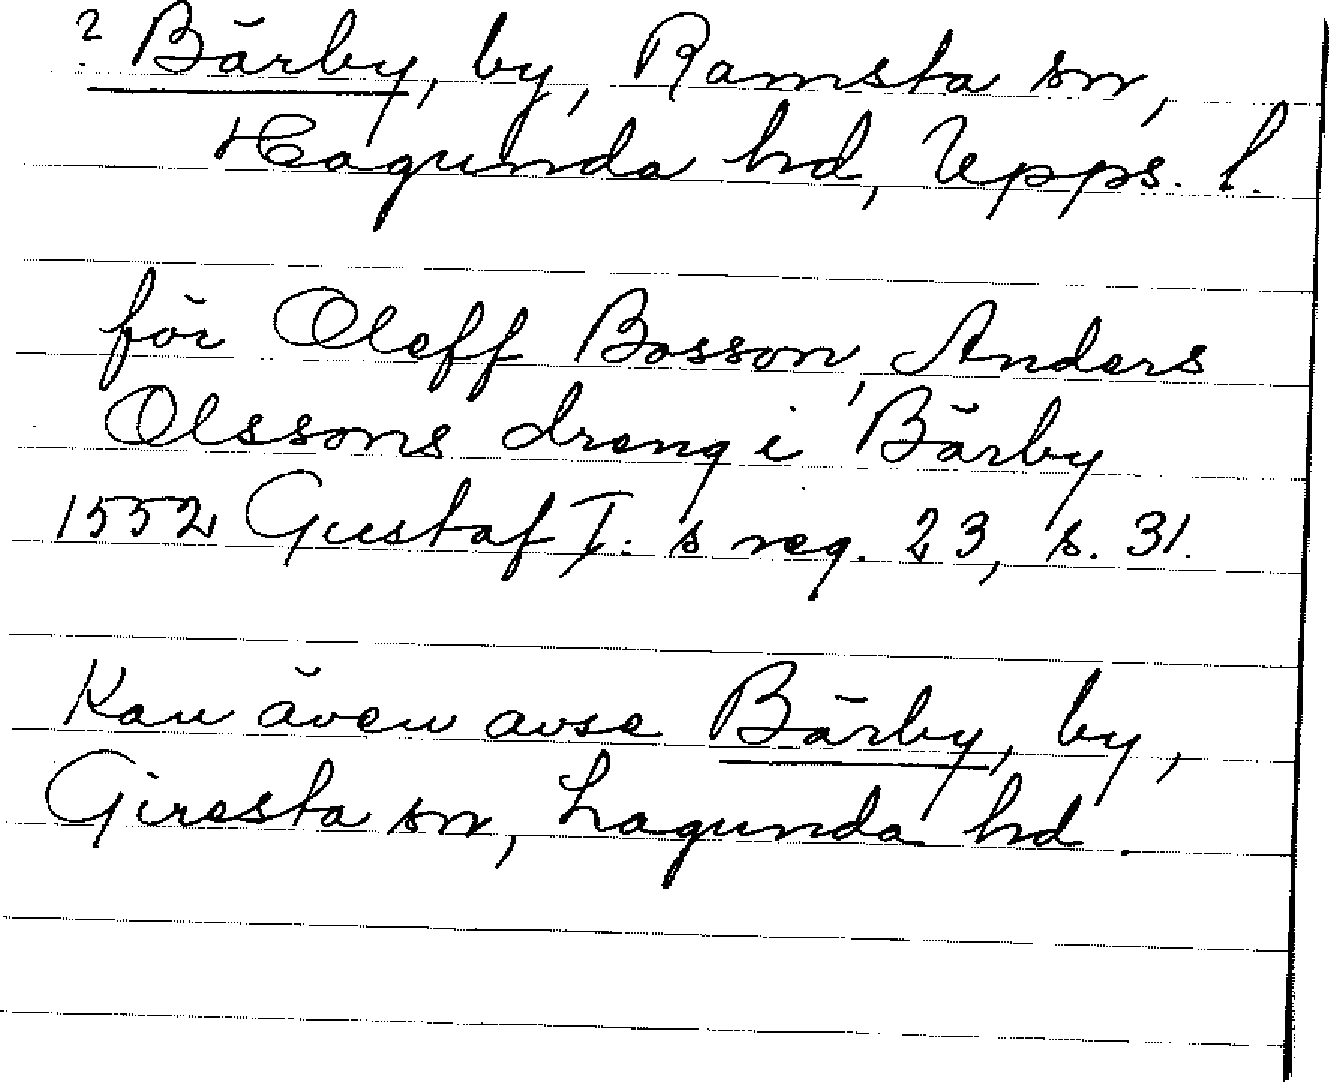 ? Bärby, by, Ramsta sn,
Hagunda hd, Upps. l.
för Oleff Bosson, Anders
Olssons dreng i Bärby
1552 Gustaf I:s reg. 23, s. 31.
Kan även avse Bärby, by,
Giresta sn, Lagunda hd.